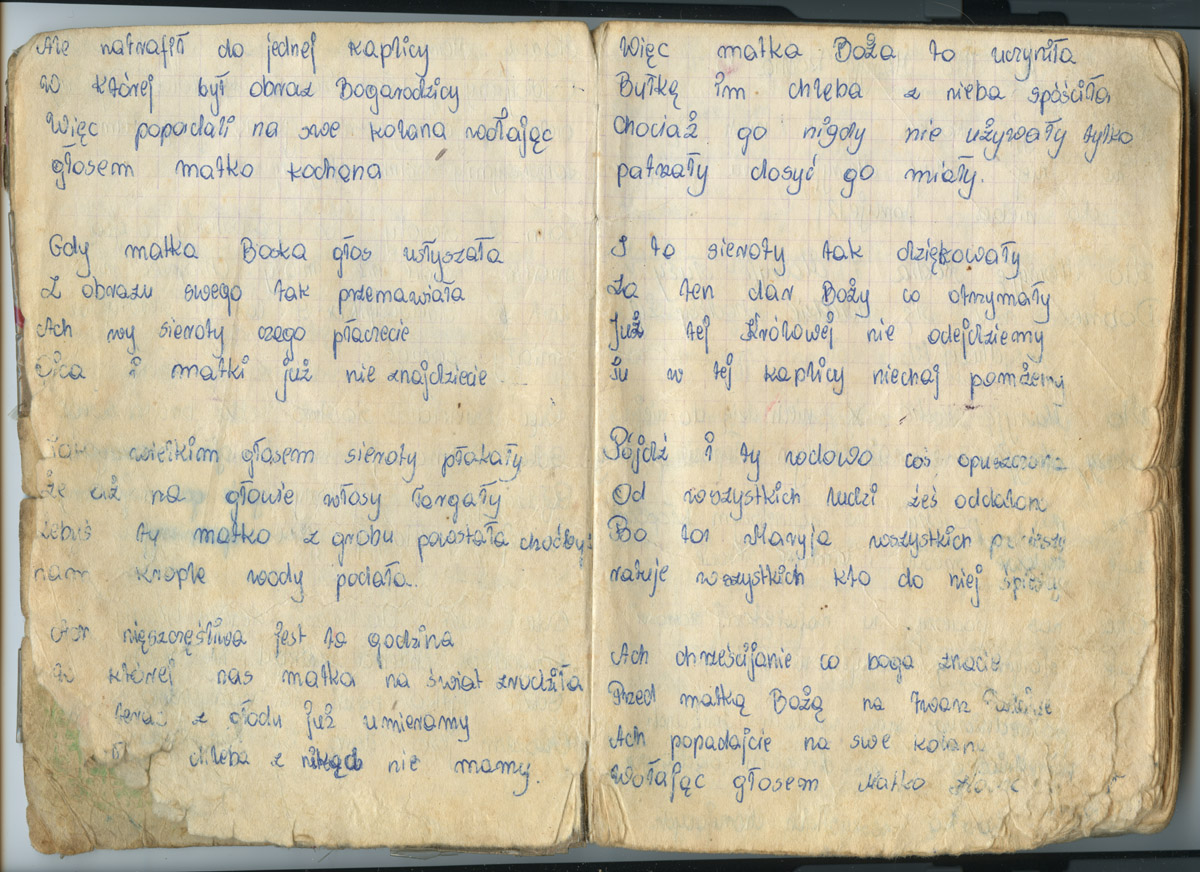 Ale natrafił do jednej kaplicy
W której był obraz Bogarodzicy
Więc popadali na swe kolana wołając
głosem matko kochana
Gdy matka Boska głos usłyszała
Z obrazu swego tak przemawiała
Ach wy sieroty czego płaczecie
Ojca i matki już nie znajdziecie
Tak wielkim głosem sieroty płakały
że aż na głowie włosy targały
żebyś ty matko z grobu powstała choćbyś
nam krople wody podała.
Ach nięszczęśliwa jest to godzina
w której nas matka na świat zrodziła
teraz z głodu już umieramy
bo chleba z nikąd nie mamy.
Więc matka Boża to uczyniła
Bułkę im chleba z nieba spóściła
chociaż go nigdy nie używały tylko
patrzały dosyć go miały.
I to sieroty tak dziękowały
Za ten dar Boży co otrzymały
Już tej Królowej nie odejdziemy
tu w tej kaplicy niechaj pomżemy
Pójdź i ty wdowo coś opuszczona
Od wszystkich ludzi żeś oddalon
Bo ta Maryja wszystkich
ratuje wszystkich kto do niej
Ach chrześcijanie co boga znacie
Przed matką Bożą na twarz
Ach popadajcie na swe kolana
Wołając głosem Matko